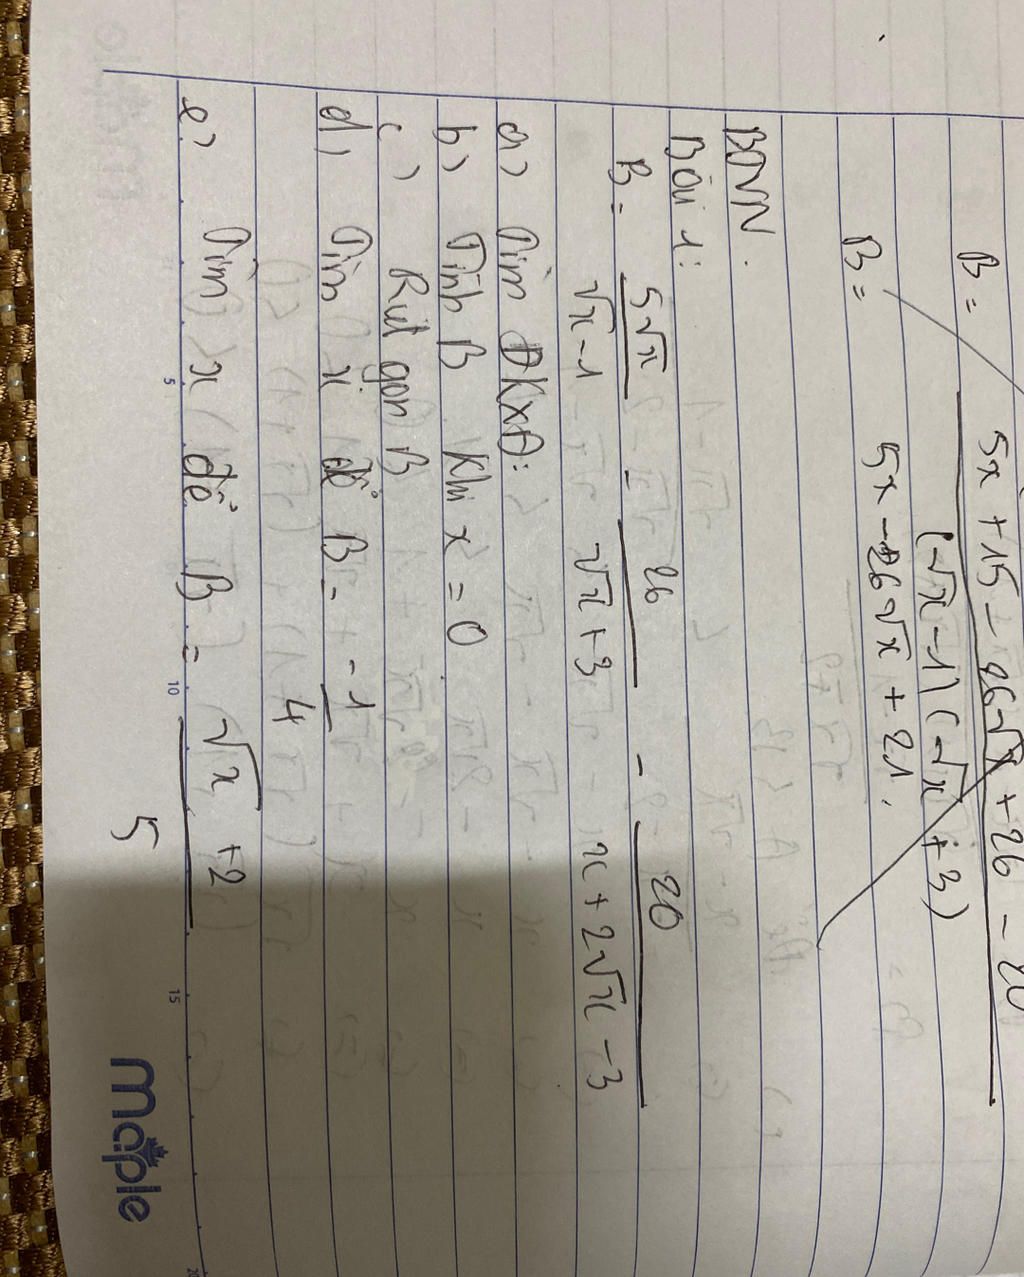 B = (5x + 15 - 26√x + 26 - 20) / ((√x - 1)(√x + 3))
B = 5x - 26√x + 21.
BTVN.
Bài 1:
B = 5√x / (√x - 1) - 26 / (√x + 3) - 20 / (x + 2√x - 3)
a) Tìm ĐKXĐ:
b) Tính B khi x = 0
c) Rút gọn B
d) Tìm x để B = -1/4
e) Tìm x để B = (√x + 2) / 5
5 10 15 20
maple